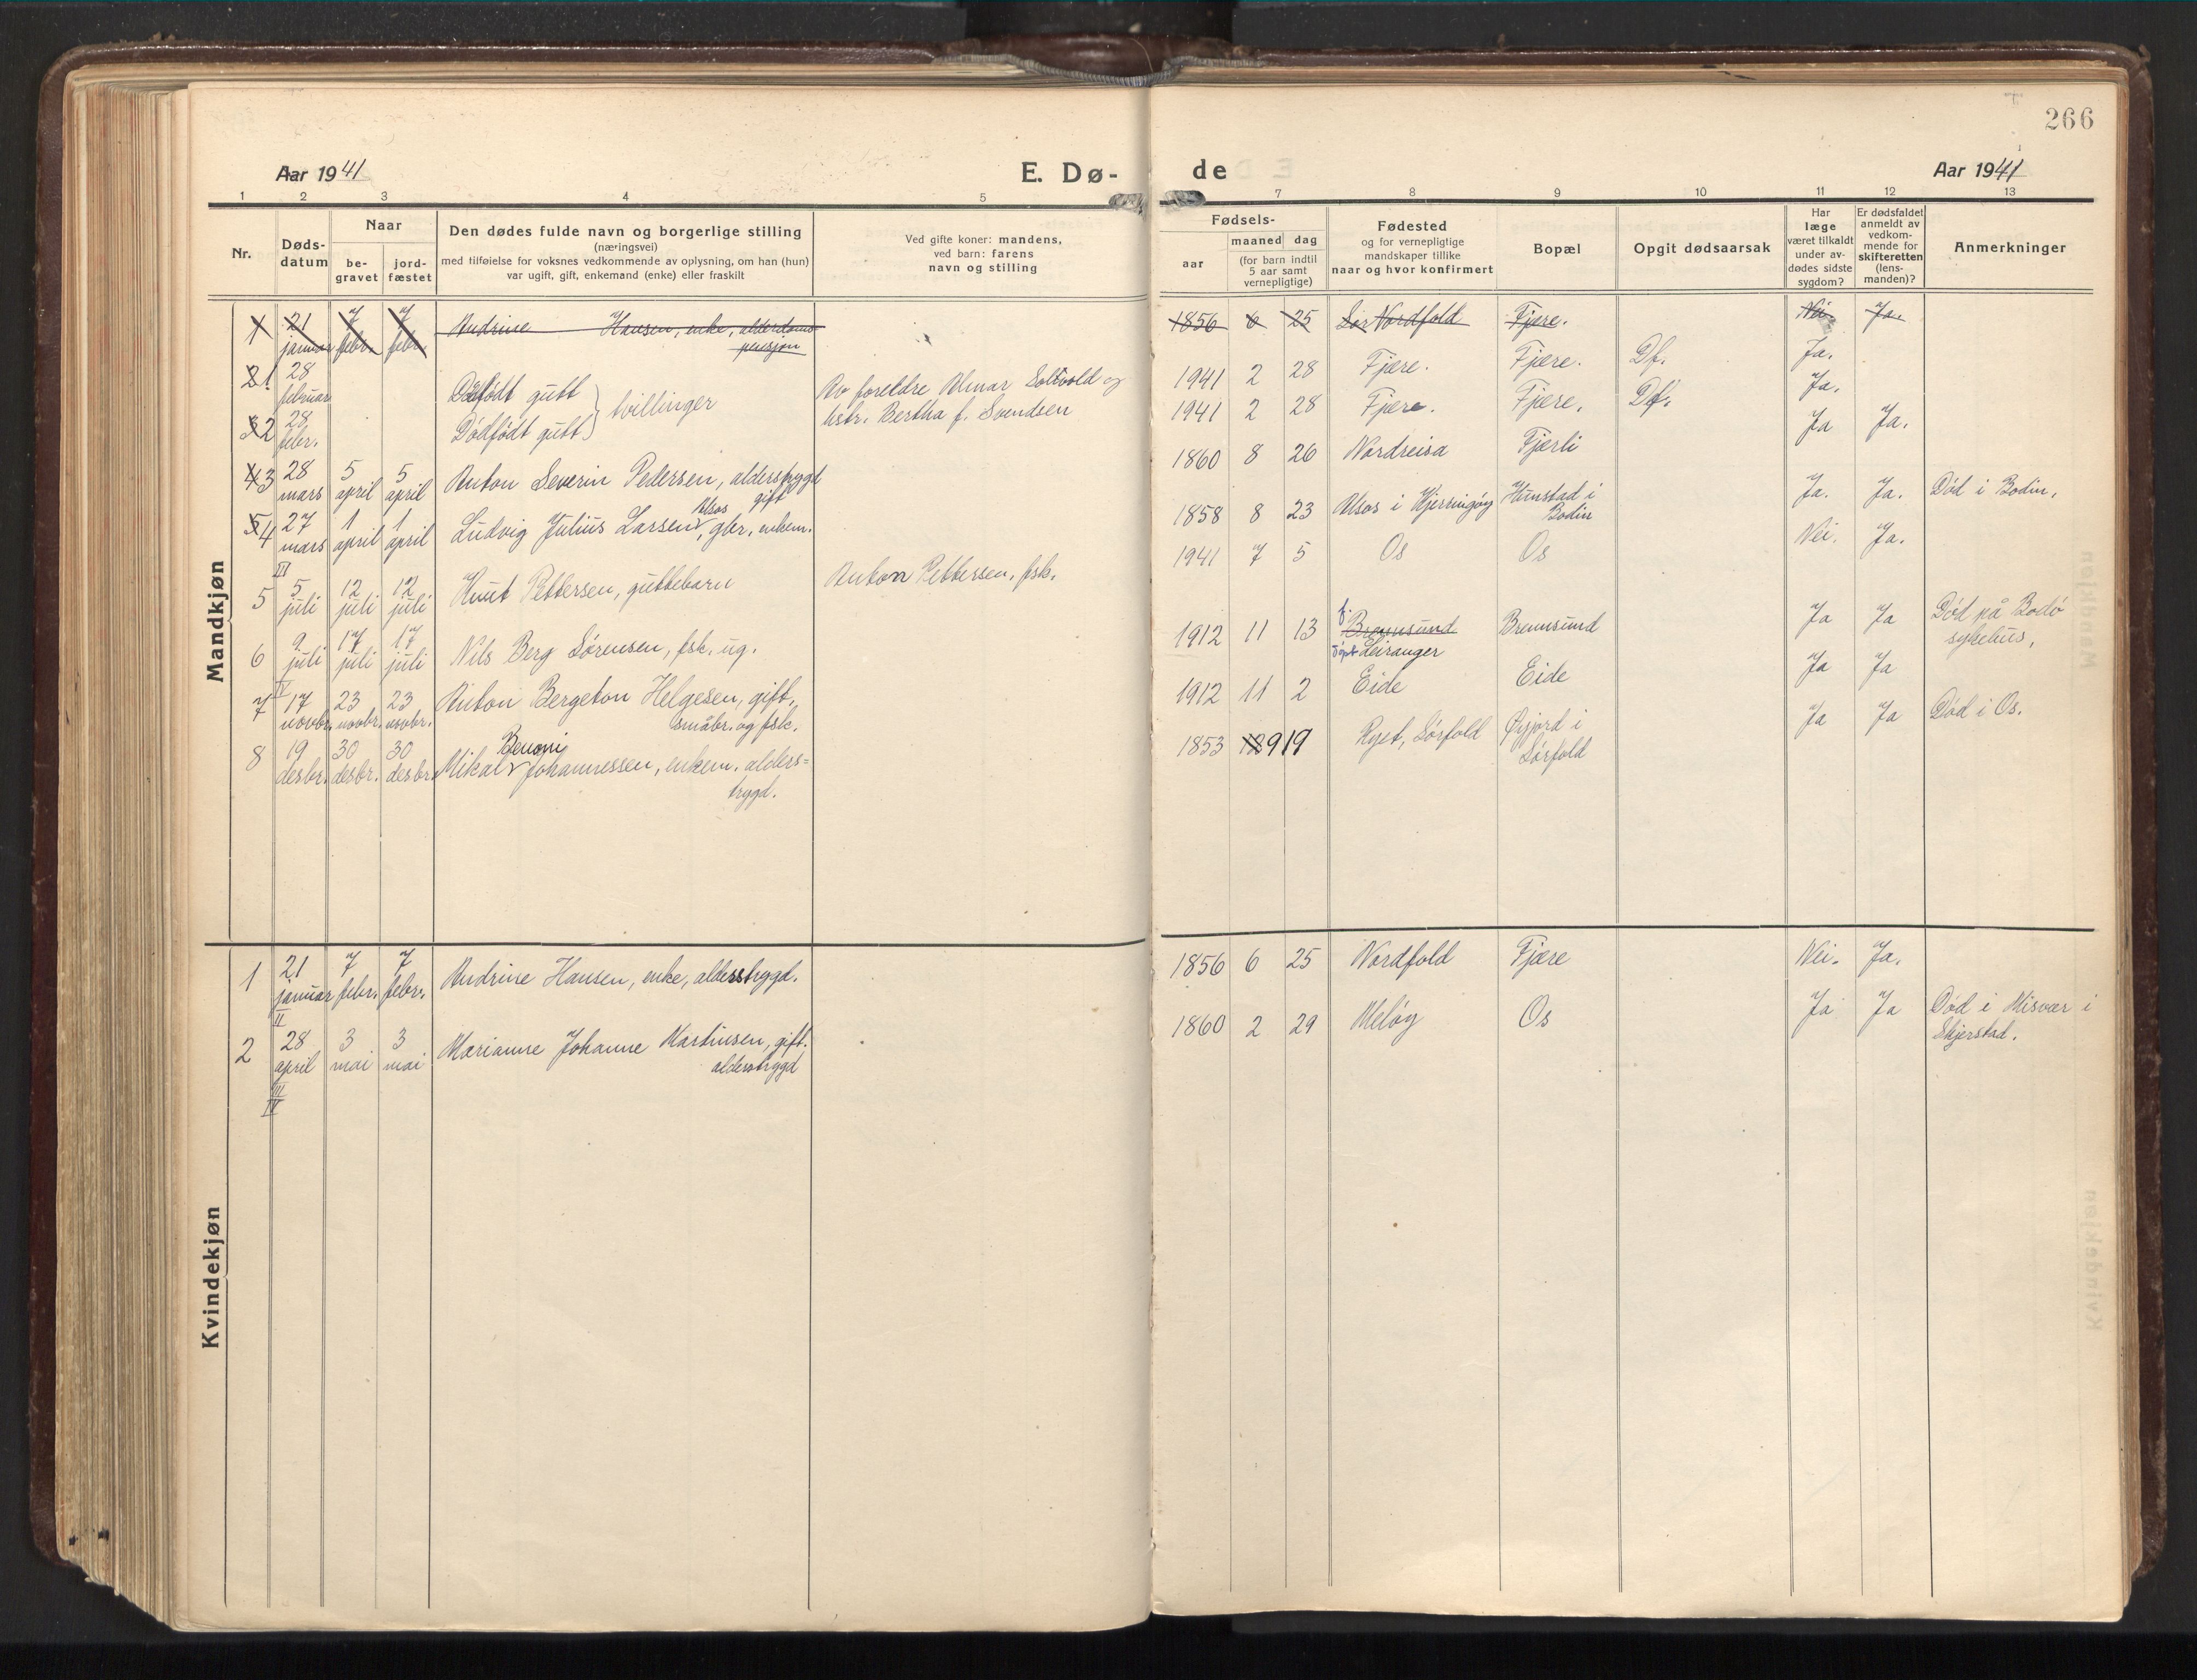 266
Aar 1941
E. Dø-
de
Aar 1941
1 2 3 4 5
7 8 9 10 11 12 13
Nr.
Døds-
datum
Naar
be-
gravet
jord-
fæstet
Den dødes fulde navn og borgerlige stilling
(næringsvei)
med tilføielse for voksnes vedkommende av oplysning, om han (hun)
var ugift, gift, enkemand (enke) eller fraskilt
Ved gifte koner: mandens,
ved barn: farens
navn og stilling
Fødsels-
aar
maaned dag
(for barn indtil
5 aar samt
vernepligtige)
Fødested
og for vernepligtige
mandskaper tillike
naar og hvor konfirmert
Bopæl
Opgit dødsaarsak
Har
læge
været tilkaldt
under av-
dødes sidste
sygdom?
Er dødsfaldet
anmeldt av
vedkom-
mende for
skifteretten
(lens-
manden)?
Anmerkninger
Mandkjøn
1 21 januar 7 febr. 7 febr. Andrine Hansen, enke, alderdoms-
pensjon
1856 6 25 Sør Nordfold Fjære. Nei. Ja.
2 1 28 februar Dødfødt gutt
tvillinger
Av foreldre Almar Soltvold og
1941 2 28 Fjære. Fjære. Df. Ja.
3 2 28 febr. Dødfødt gutt
hstr. Bertha f. Svendsen
1941 2 28 Fjære. Fjære. Df. Ja.
4 3 28 mars 5 april 5 april Anton Severin Pedersen, alderstrygd
gift
1860 8 26 Nordreisa Fjærli Ja Ja.
5 4 27 mars 1 april 1 april Ludvig Julius Larsen Alsos, gbr, enkem.
1858 8 23 Alsos i Kjerringøy Hunstad i
Bodin
Ja. Ja. Død i Bodin.
III
5 5 juli 12 juli 12 juli Knut Pettersen, guttebarn
Anton Pettersen, fsk.
1941 7 5 Os Os Nei. Ja.
6 9 juli 17 juli 17 juli Nils Berg Sørensen, fsk. ug.
1912 11 13 f. Brennsund
døpt Leiranger
Brennsund Ja Ja Død på Bodø
sykehus,
IV
7 17 novbr. 23 novbr. 23 novbr. Anton Bergeton Helgesen, gift,
småbr. og fsk.
1912 11 2 Eide Eide Ja Ja
8 19 desbr. 30 desbr. 30 desbr. Mikal Benoni Johannessen, enkem. alders=
trygd.
1853 12 9 19 Ryet, Sørfold Øyjord i
Sørfold
Ja Ja Død i Os.
Kvindekjøn
1 21 januar 7 febr. 7 febr. Andrine Hansen, enke, alderstrygd.
1856 6 25 Nordfold Fjære Nei. Ja.
II
2 28 april 3 mai 3 mai Marianne Johanne Martinsen, gift.
alderstrygd
1860 2 29 Meløy Os Ja Ja Død i Misvær i
Skjerstad.
III
IV